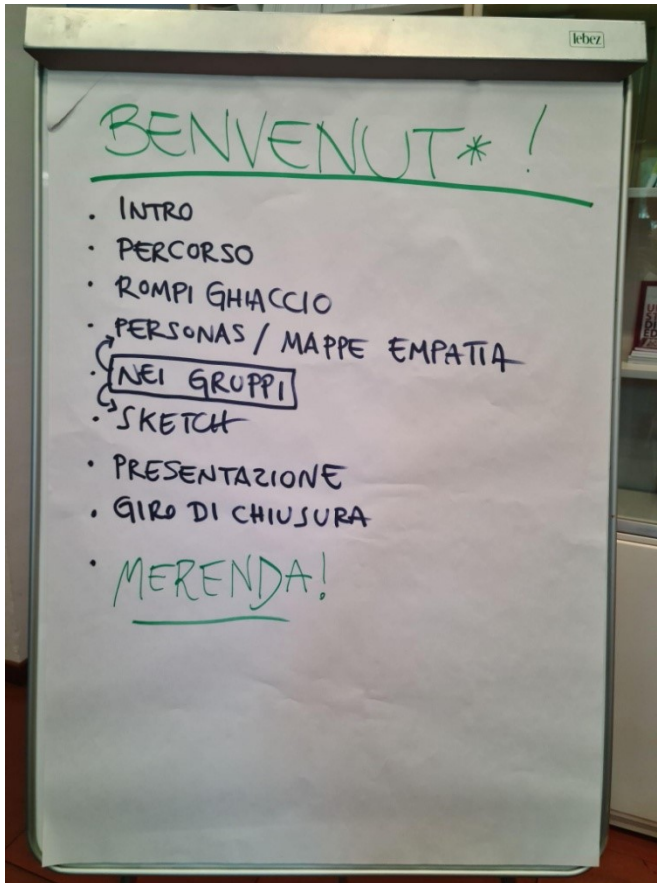 lebez
BENVENUT* !
. INTRO
· PERCORSO
· ROMPI GHIACCIO
· PERSONAS / MAPPE EMPATIA
· NEI GRUPPI
· SKETCH
· PRESENTAZIONE
. GIRO DI CHIUSURA
· MERENDA!